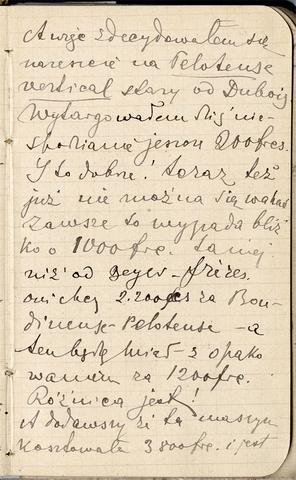 A więc zdecydowałem się
nareszcie na Pelotense
vertical stary od Dubois
Wytargowałem dziś nie-
spodzianie jeszcze 200 frcs.
I to dobrze! teraz też
już nie można się wahać
zawsze to wypada bliz
ko o 1000 frc. taniej
niż od Beyer-frères.
oni chcą 2.200 frcs za Bou-
dineuse-Pelotense - a
ten będę miał z opako
waniem za 1200 frc.
Różnica jest!
A dodawszy że ta maszyn
kosztowała 3800 frc. i jest